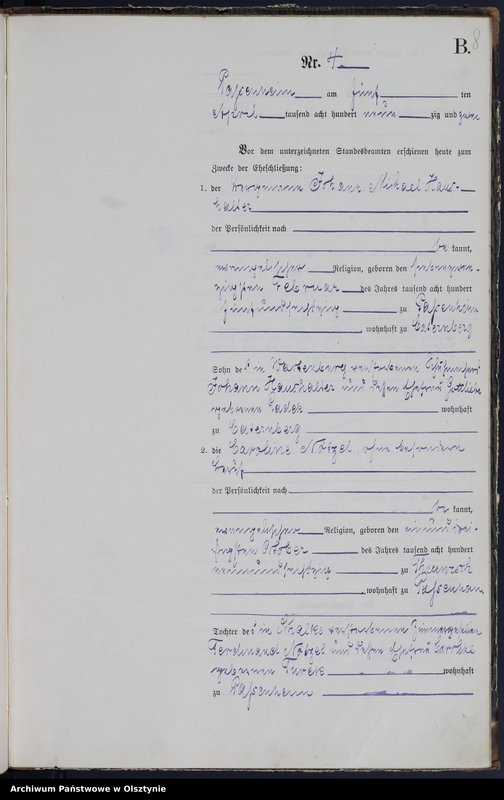 B.
8
Nr. 4
Passenheim am fünf ten
April tausend acht hundert neun zig und zwei
Vor dem unterzeichneten Standesbeamten erschienen heute zum
Zwecke der Eheschließung:
1. der Bergmann Johann Michael Haus-
halter
der Persönlichkeit nach
be kannt,
evangelischer Religion, geboren den siebenzwan-
zigsten Februar des Jahres tausend acht hundert
fünfundsechszig zu Passenheim
, wohnhaft zu Caternberg
Sohn des in Wartenburg verstorbenen
Johann Haushalter und dessen Ehefrau Gottliebe
geborenen Sadek wohnhaft
zu Caternberg
2. die Caroline Nötzel, ohne besonderen
Beruf
der Persönlichkeit nach
be kannt,
evangelischer Religion, geboren den einunddrei-
ßigsten October des Jahres tausend acht hundert
neunundsechszig zu
, wohnhaft zu Passenheim
Tochter des in verstorbenen Zimmergesellen
Ferdinand Nötzel und dessen Ehefrau Caroline
geborenen wohnhaft
zu Passenheim
Archiwum Państwowe w Olsztynie